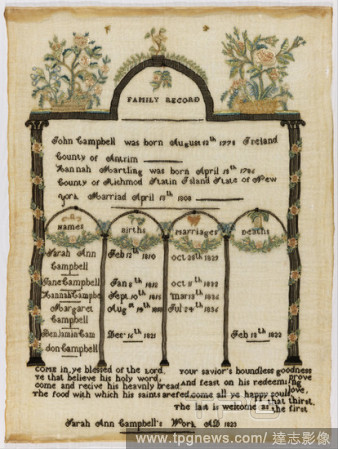 FAMILY RECORD
John Campbell was born August 12th 1774 Ireland
County of Antrim
Hannah Martling was born April 15th 1786
County of Richmod Statin Island State of New
York Married April 15th 1808
Names Births Marriages Deaths
Sarah Ann Feb 12th 1810 Oct 20th 1829
Campbell
Jane Campbell Jan 8th 1812
Hannah Campbe Sept 10th 1815
Margaret Aug
Campbell
Benjamin Cam Dec 16th 1821 Feb 18th 1822
don Campbell
Come in, ye blessed of the Lord, your savior's boundless goodness
ye that believe his holy word, prove
come and recive his heavnly bread and feast on his redeeming
The food with which his saints arefed come all ye happy souls love,
that thirst,
The last is welcome as the first
Sarah Ann Campbell's Work AD 1823
www.tpgnews.com/達志影像